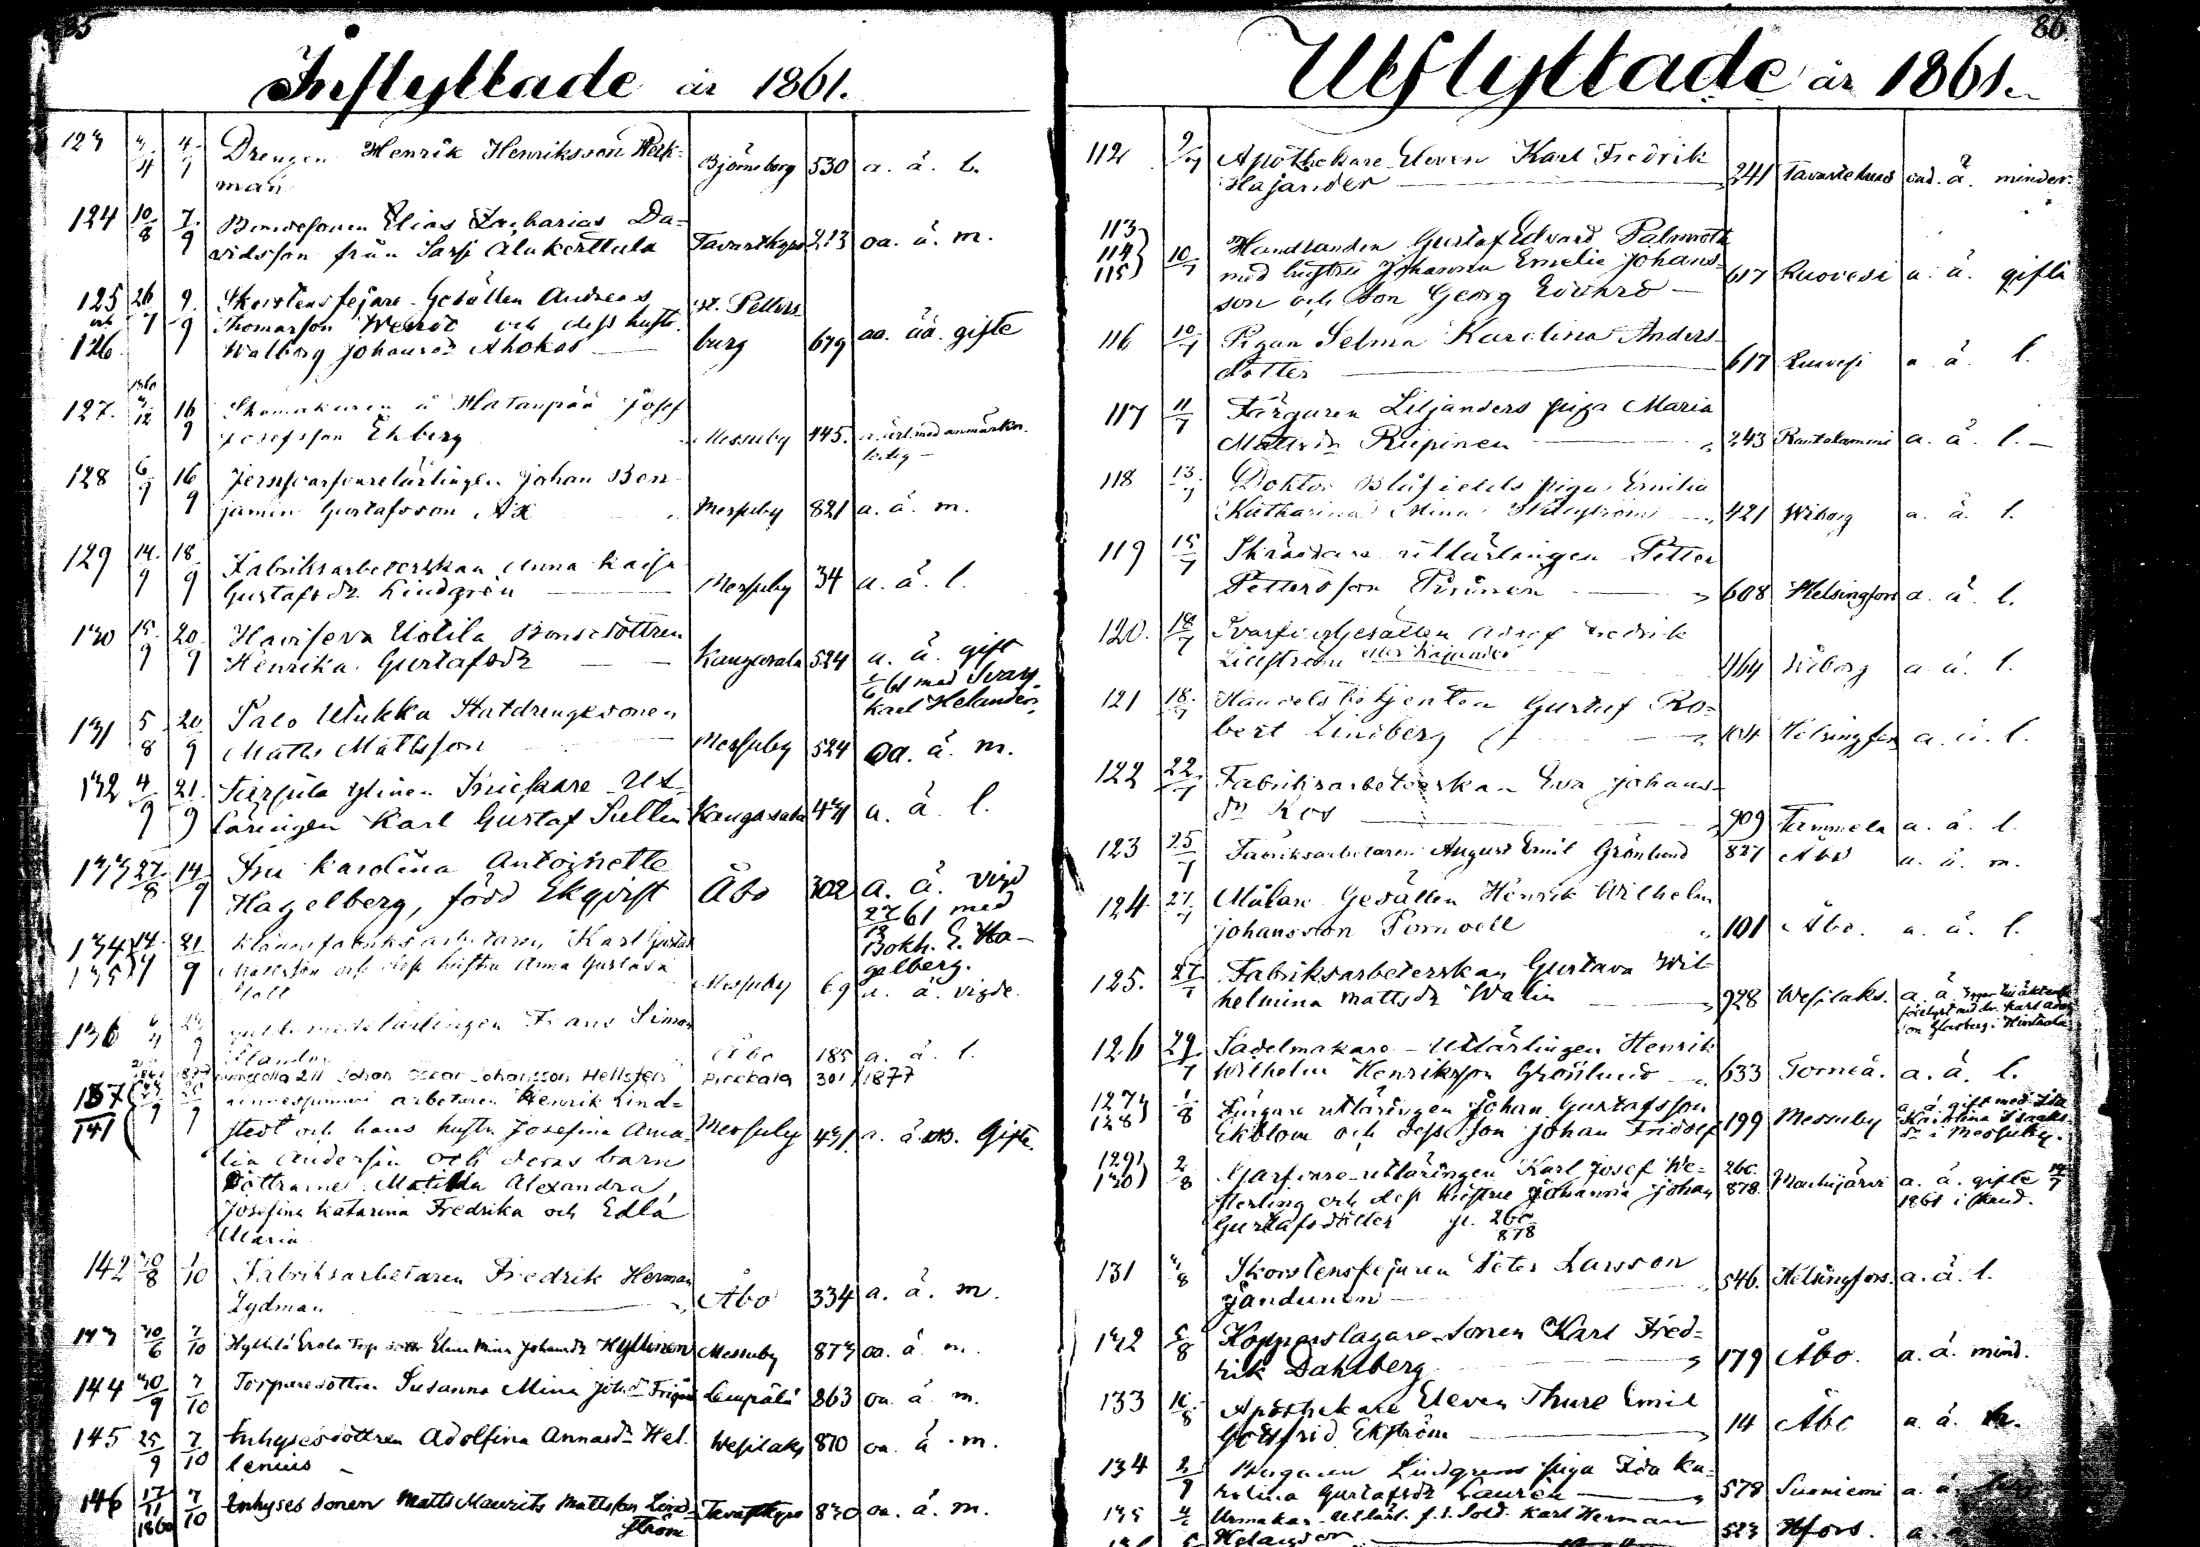 85
Inflyttade år 1861.
123 4/7 Drengen Henrik Henriksson Werk-
man Björneborg 530 a. ä. l.
124 10/8 7/9 Bondesonen Elias Zacharias Da-
vidsson från Sarfs Alakerttula Tavastkyro 213 oa. ä. m.
125 26/7 9/9 Skorstensfejare-Gesällen Andreas St. Petters-
och Thomasson Weirot och dess hustr.
126 Walborg Johansdr Ahokas burg 679 aa. ää. gifte
1860
127. 12 16/9 Skomakaren å Hatanpää Josef
Josefsson Ekberg Messuby 445. med anmärkn.
ledig
128 6/9 16/9 Jernsvarfvarelärlingen Johan Ben-
jamin Gustafsson Ax Messuby 821 a. ä. m.
129 14/9 18/9 Fabriksarbeterskan Anna Kaisa
Gustafsdr. Lindgren Messuby 34 a. ä. l.
130 15/9 20/9 Havisevä Uotila Bondedottren
Henrika Gustafsdr Kangasala 524 a. ä. gift
6 61 med Svarf.
Karl Helander.
131 5/8 20/9 Palo Ukkka Statdrengesonen
Matts Mattsson Messuby 524 oa. ä. m.
132 4/9 21/9 Snickare-Ut-
läringen Karl Gustaf Sellin Kangasala 431 a. ä. l.
133 27/8 14/9 Fru Karolina Antoinette
Hagelberg, född Ekqvist Åbo 302 a. ä. vigd
61 med
Bokh. E. Ha-
gelberg.
134 21/9 Klädesfabriksarbetaren Karl Gustaf
135 Mattsson och dess hustru Anna Gustava
Messuby 69 a. ä. vigde.
136 Guldsmedslärlingen Frans Simon
Åbo 185 a. ä. l.
Johan Oscar Johansson Hellsten Pirkkala 301 1877
137 arbetaren Henrik Lind-
141 stedt och hans hustr. Josefina Ama- Messuby 431. Gifte.
lia Andersin och deras barn
Döttrarne Matilda Alexandra,
Josefina Katarina Fredrika och Edla
Maria
142 30/8 1/10 Fabriksarbetaren Fredrik Herman
Lydman Åbo 334 a. ä. m.
143 30/6 7/10 Hyttilä Erola Torp dottr. Elina Mina Johansdr Hyttinen Messuby 873 oa. ä. m.
144 30/9 7/10 Torparedottren Susanna Mina Joh.dr Lempäälä 863 oa ä. m.
145 25/9 7/10 Inhysesdöttren Adolfina Annasdr Hel- Wesilaks 870 oa ä. m.
lenius
146 17/11 1860 7/10 Inhyses sonen Matts Maurits Mattsson Lind- Tavastkyro 830 oa. ä. m.
ström
86.
Utflyttade år 1861.
112 9/7 Apothekare Eleven Karl Fredrik
Hajander 241 Tavastehus oad. ä. minder.
113
114 10/7 Handlanden Gustaf Edvard Palmroth
115 med hustru Johanna Emelie Johans- 617 Ruovesi a. ä. gifta
son och Son Georg Edvard
116 10/7 Pigan Selma Karolina Anders-
dotter 617 Ruovesi a ä l.
117 11/7 Färgaren Liljanders piga Maria
Mattsdr Riipinen 243 Rautalammi a. ä. l.
118 13/7 Doktor Blåfields piga Emilia
Katharina Mina 421 Wiborg a. ä. l.
119 15/7 Skräddare utlärlingen Petter
Pettersson Piirinen 608 Helsingfors a. ä. l.
120. 18/7 Svarfvar Gesällen Adolf Fredrik
Liedström eller Kajander 464 Wiborg a ä. l.
121 18/7 Handelsbetjenten Gustaf Ro-
bert Lindberg 104 Helsingfors a. ä. l.
122 22/7 Fabriksarbeterskan Eva Johans-
dr Kos 909 Tammela a. ä. l.
123 25/7 Fabriksarbetaren August Emil Grönlund 827 Åbo a. ä. m.
124 27/7 Målare Gesällen Henrik Wilhelm
Johansson Fornoell 101 Åbo. a. ä. l.
125. 27/7 Fabriksarbeterskan Gustava Wil-
helmina Mattsdr Walin 928 Wesilaks. a. ä.
126 29/7 Sadelmakare-Utlärlingen Henrik
Wilhelm Henriksson Grönlund 633 Torneå. a. ä. l.
127 1/8 Färgare utläringen Johan Gustafsson a ä gift med Ida
128 Ekblom och dess son Johan Fridolf 199 Messuby Karolina Isaaks-
dr i Messuby.
129 2/8 Garfvare-utläringen Karl Josef We- 260.
130 sterling och dess hustru Johanna Johan 878. Mouhijärvi a. ä. gifte
Gustafsdotter p. 260/878 1861 i stad.
131 4/8 Skorstensfejaren Peter Larsson
Jändunen 546. Helsingfors. a. ä. l.
132 5/8 Kopparslagare-Sonen Karl Fred-
rik Dahlberg 179 Åbo. a. ä. mind.
133 16/8 Apothekare Eleven Thure Emil
Gottfrid Ekström 14 Åbo a. ä.
134 2/9 Bagaren Lindgrens piga Ida Ka-
rolina Gustafsdr Lauren 578 Suoniemi a. ä.
135 Urmakar-Utlärl. f.d. Sold. Karl Herman
Helander 523 Hfors. a.